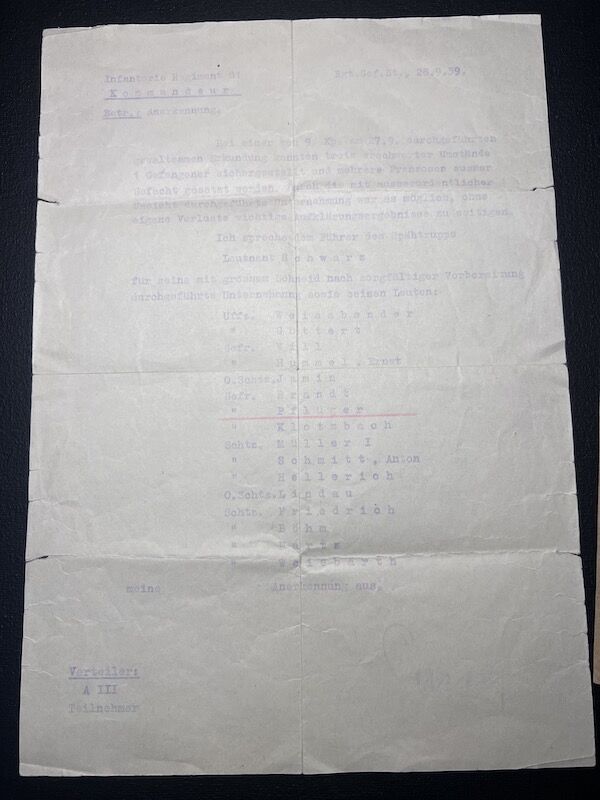 Infanterie Regiment 81
Rgt.Gef.St., 28.9.39.
Kommandeur.
Betr.: Anerkennung.
Bei einer von 9. Kp. am 27.9. durchgeführten
gewaltsamen Erkundung konnten trotz erschwerter Umstände
1 Gefangener sichergestellt und mehrere Franzosen ausser
Gefecht gesetzt werden. Durch die mit ausserordentlicher
Umsicht durchgeführte Unternehmung war es möglich, ohne
eigene Verluste wichtige Aufklärungsergebnisse zu zeitigen.
Ich spreche dem Führer des Spähtrupps
Leutnant Schwarz
für seine mit grossem Schneid nach sorgfältiger Vorbereitung
durchgeführte Unternehmung sowie seinen Leuten:
Uffz. Weissbender
" Göttert
Gefr. Will
" Hummel, Ernst
O.Schtz. Jamin
Gefr. Brandt
" Pflüger
" Klotzbach
Schtz. Müller I
" Schmitt, Anton
" Hellerich
O.Schtz. Lindau
Schtz. Friedrich
" Böhm
"
" Weisbarth
meine Anerkennung aus.
Verteiler:
A III
Teilnehmer